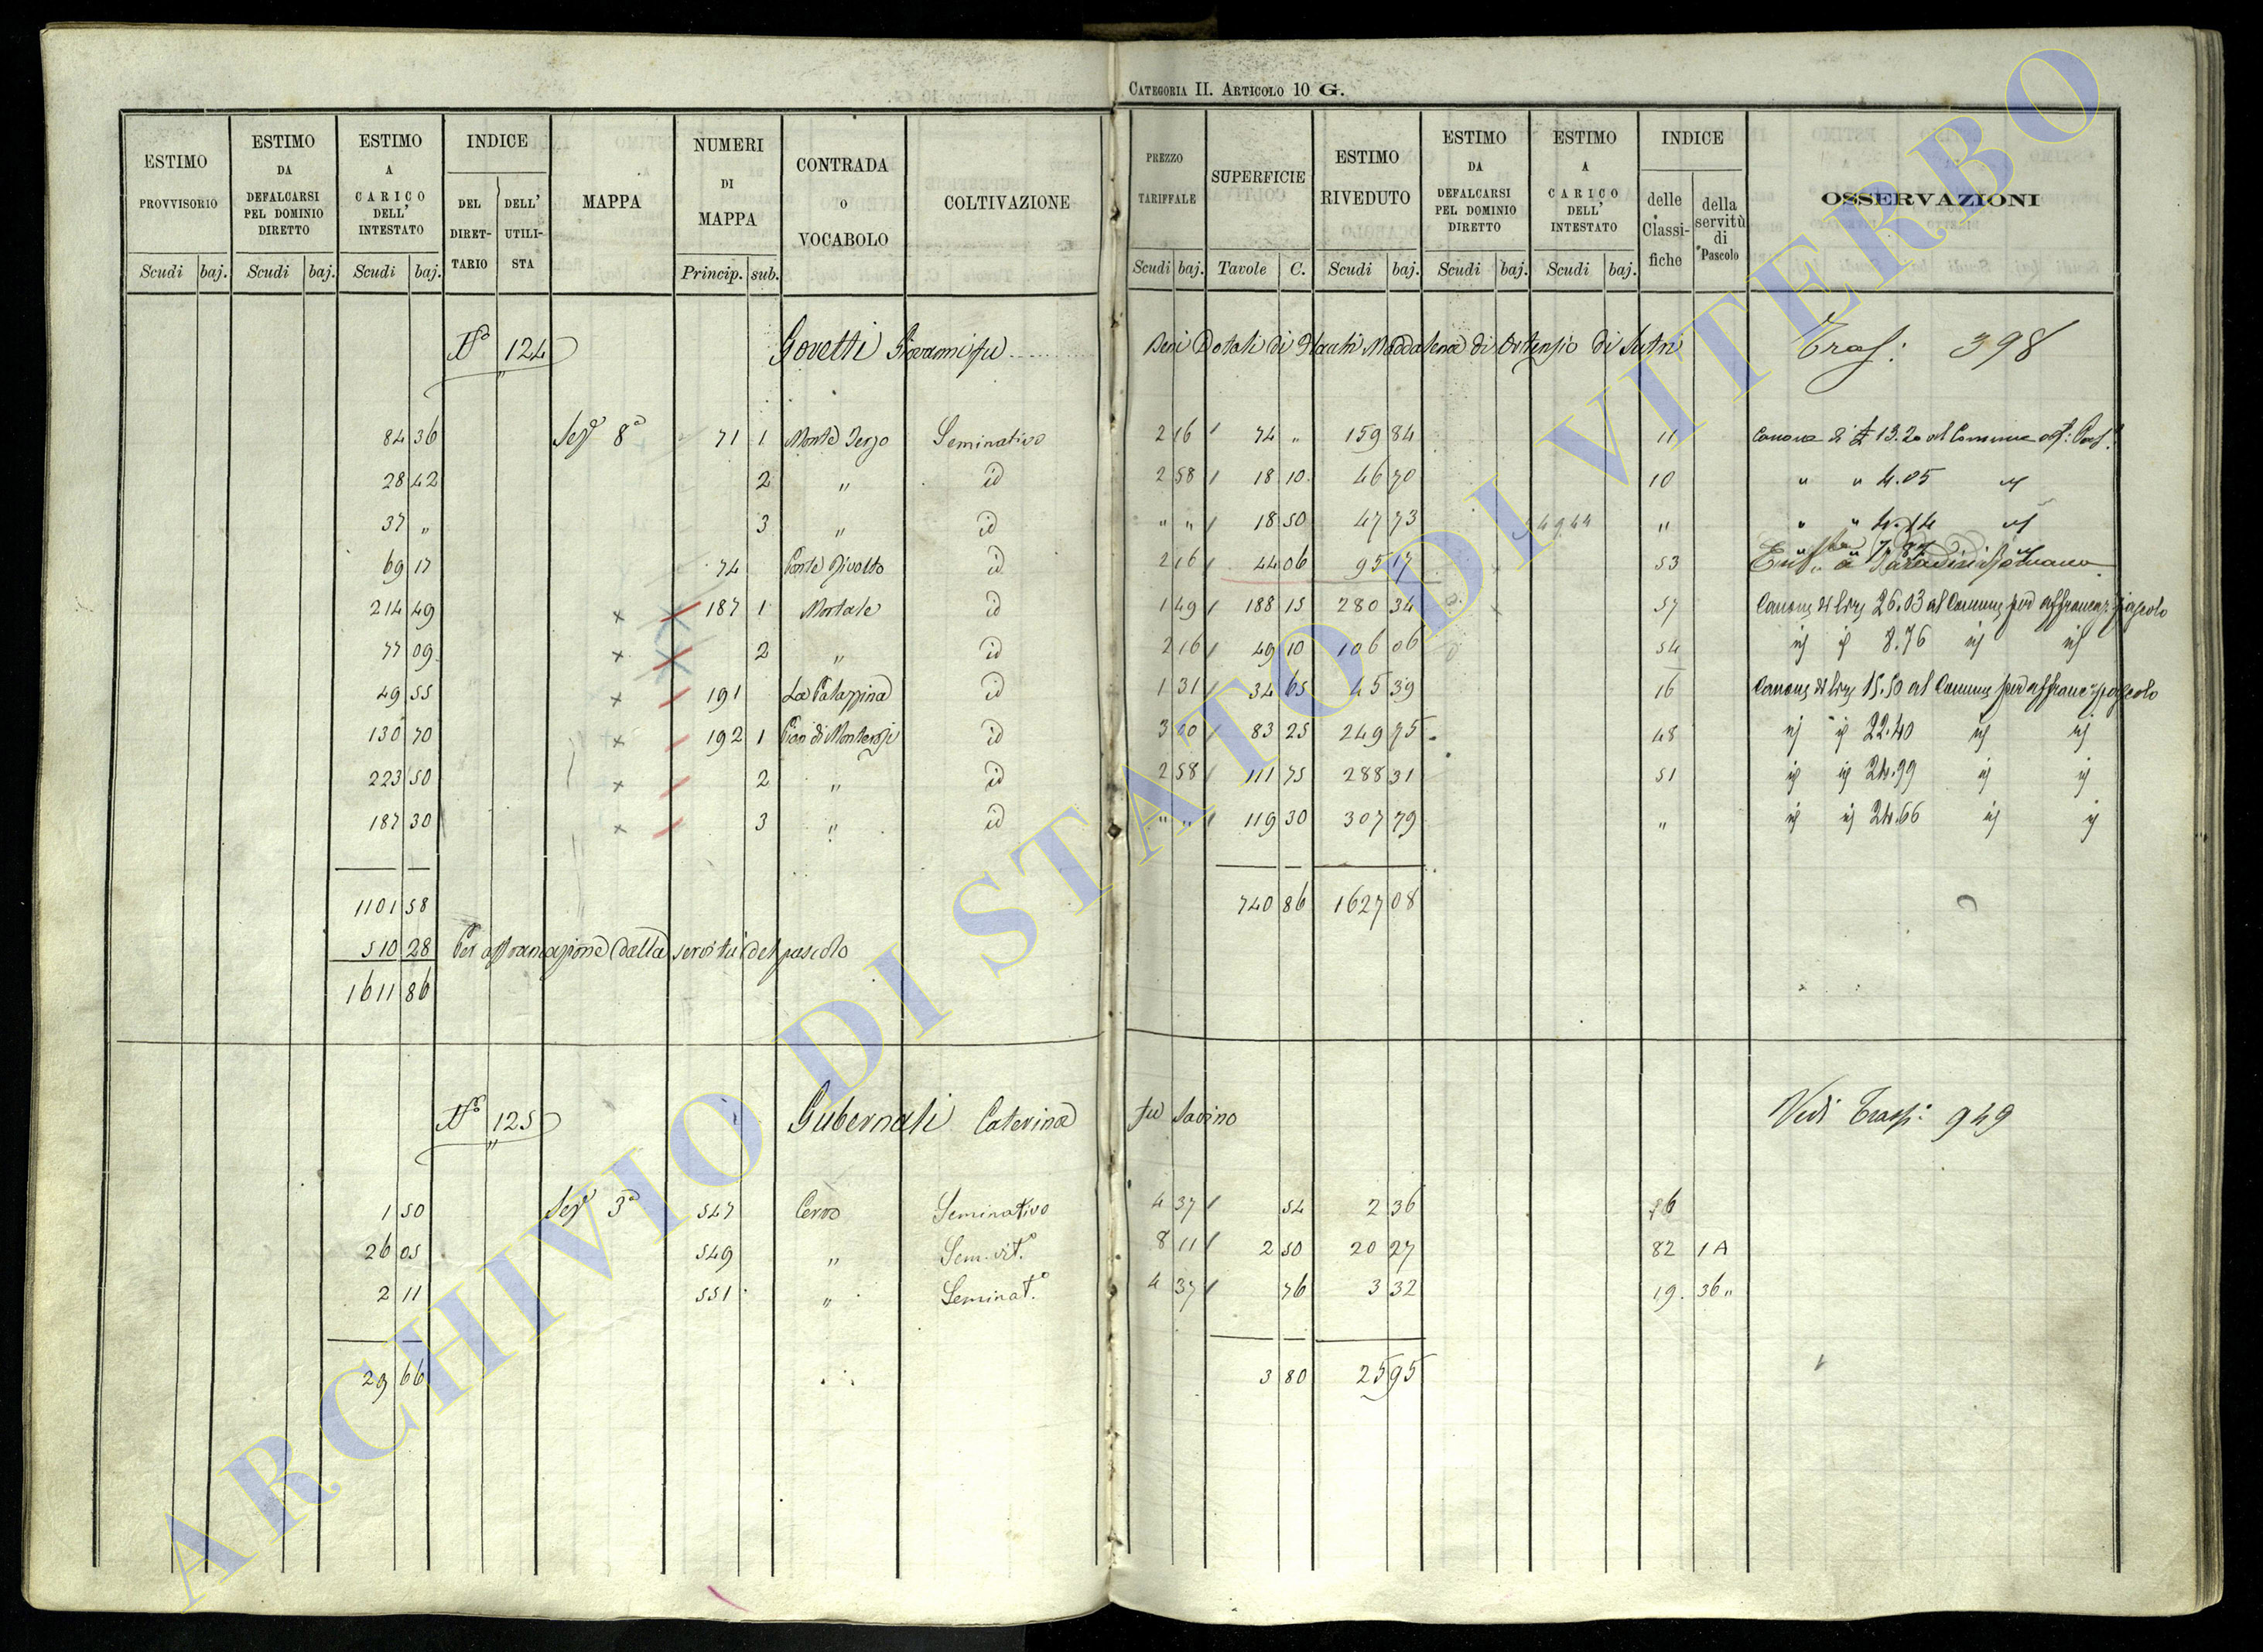 CATEGORIA II. ARTICOLO 10 G.
ESTIMO PROVVISORIO Scudi baj.
ESTIMO DA DEFALCARSI PEL DOMINIO DIRETTO Scudi baj.
ESTIMO A CARICO DELL' INTESTATO Scudi baj.
INDICE DEL DIRETTARIO DELL' UTILISTA
MAPPA
NUMERI DI MAPPA Princip. sub.
CONTRADA O VOCABOLO
COLTIVAZIONE
PREZZO TARIFFALE Scudi baj.
SUPERFICIE Tavole C.
ESTIMO RIVEDUTO Scudi baj.
ESTIMO DA DEFALCARSI PEL DOMINIO DIRETTO Scudi baj.
ESTIMO A CARICO DELL' INTESTATO Scudi baj.
INDICE delle Classifiche della servitù di Pascolo
OSSERVAZIONI
No 124 Govetti Giovanni fu ...... Beni Dotali di Maddalena di Ortensio di Sutri Tras: 398
84 36 Sez. 8a 71 1 Monte Terzo Seminativo 2 16 74 " 159 84 11 Canone di £ 13.20 al Comune
28 42 2 " id 2 58 18 10 46 70 10 " " 4.05
37 " 3 " id " " 18 50 47 73 " " " 4.14
69 17 74 Ponte Rivolto id 2 16 44 06 95 17 53
214 49 187 1 Mortale id 1 49 188 15 280 34 57 Canone di lire 26.03 al Comune per affrancaz. pascolo
77 09 2 " id 2 16 49 10 106 06 54 id id 8.76 id id
49 55 191 La Palazzina id 1 31 34 65 45 39 16 Canone di lire 15.50 al Comune per affranc. pascolo
130 70 192 1 Pian di Monterosi id 3 00 83 25 249 75 48 id id 22.40 id id
223 50 2 " id 2 58 111 75 288 31 51 id id 24.99 id id
187 30 3 " id " " 119 30 307 79 " id id 24.66 id id
1101 58 740 86 1627 08
510 28 Per affrancazione dalla servitù del pascolo
1611 86
No 125 Gubernati Caterina fu Savino Vedi Trasp: 949
1 50 Sez. 3a 547 Cerro Seminativo 4 37 54 2 36 76
26 05 549 " Sem. vit.o 8 11 2 50 20 27 82 1 A
2 11 551 " Seminat.o 4 37 76 3 32 19 36 "
29 66 3 80 25 95
ARCHIVIO DI STATO DI VITERBO